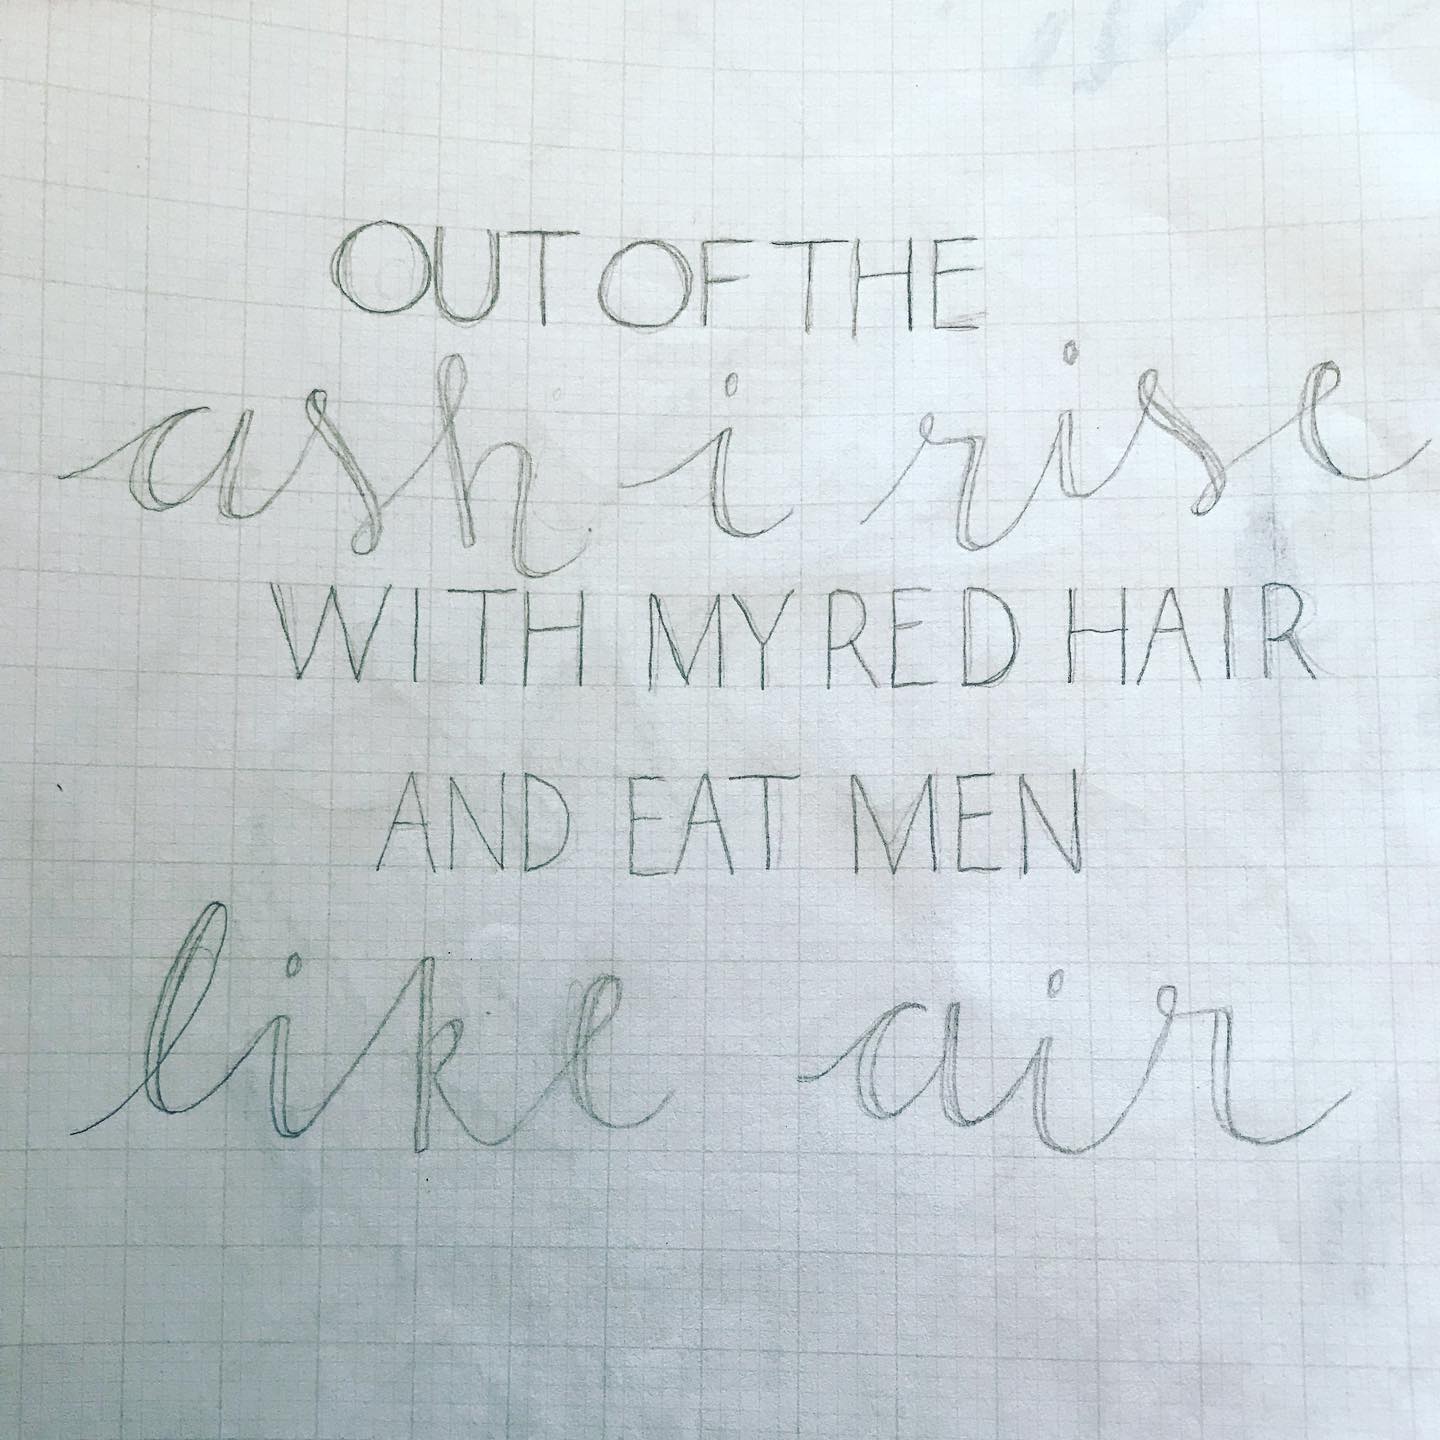 OUT OF THE
ash i rise
WITH MY RED HAIR
AND EAT MEN
like air